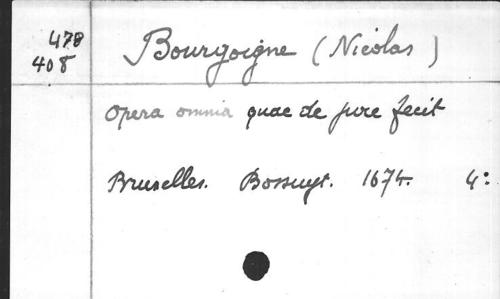 478 Bourgoigne (Nicolas)
408
Opera omnia quae de jure fecit
Bruxelles. Bossuyt. 1674. 4: